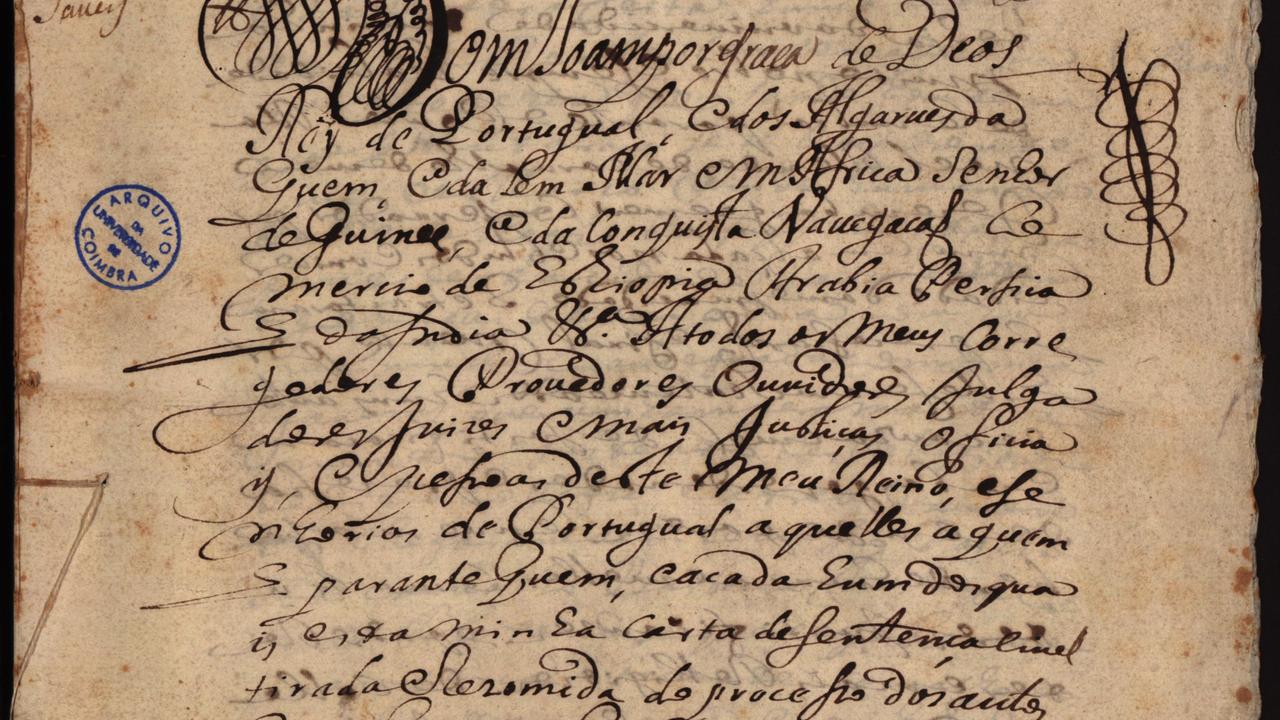 Dom Joam por graca de Deos
Rey de Portugual, e dos Algarues da
quem, e da lem Mar em Africa senhor
de Guinee, e da Conquista Nauegacaõ Co
mercio de Ethiopia Arabia Persia
E da India &.ª A todos os Meus Corre
gedores Prouedores Ouuidores Julga
dores Juizes e mais Justiças oficia
is, e pesoas deste Meu Reino, e se
nhorios de Portugual a quelles a quem
E parante quem, e a cada hum dos qua
is esta minha Carta de sentença ciuel
tirada e Rezomida do processo dos autos
ARQUIVO
DA
UNIVERSIDADE
DE
COIMBRA